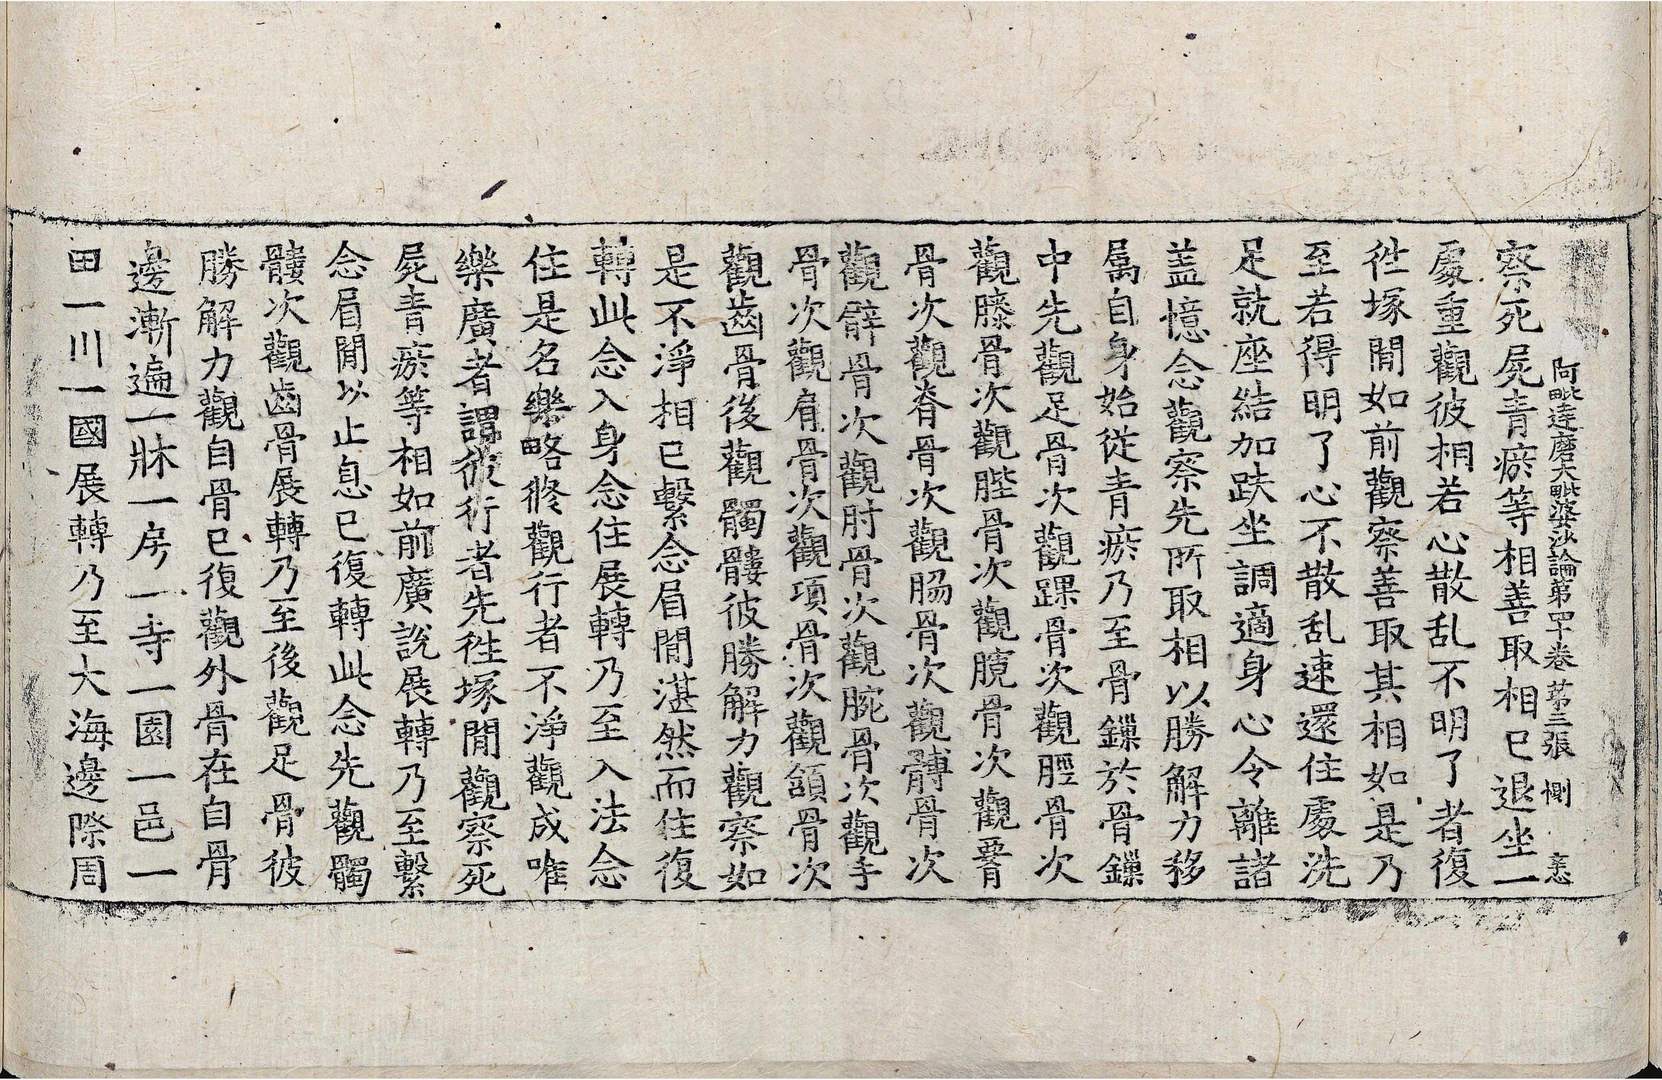 阿毗達磨大毗婆沙論第四十卷 第三張 惻
察死屍青瘀等相善取相已退坐一
處重觀彼相若心散乱不明了者復
徃塚閒如前觀察善取其相如是乃
至若得明了心不散乱速還住處洗
足就座結加趺坐調適身心令離諸
盖憶念觀察先所取相以勝解力移
属自身始從青瘀乃至骨鏁於骨鏁
中先觀足骨次觀踝骨次觀脛骨次
觀膝骨次觀䏶骨次觀髖骨次觀𦝫
骨次觀脊骨次觀肋骨次觀髆骨次
觀臂骨次觀肘骨次觀腕骨次觀手
骨次觀肩骨次觀項骨次觀頷骨次
觀齒骨後觀髑髏彼勝解力觀察如
是不淨相已繫念眉閒湛然而住復
轉此念入身念住展轉乃至入法念
住是名樂略修觀行者不淨觀成唯
樂廣者謂彼行者先徃塚閒觀察死
屍青瘀等相如前廣說展轉乃至繫
念眉閒以止息已復轉此念先觀髑
髏次觀齒骨展轉乃至後觀足骨彼
勝解力觀自骨已復觀外骨在自骨
邊漸遍一牀一房一寺一園一邑一
田一川一國展轉乃至大海邊際周